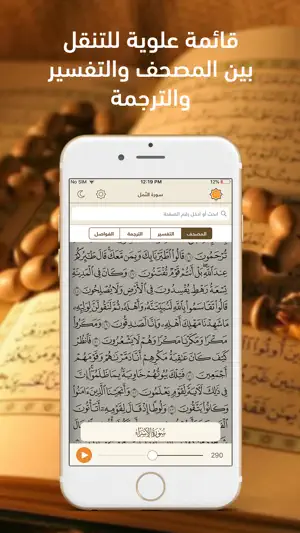 قائمة علوية للتنقل
بين المصحف والتفسير
والترجمة
No SIM 12:19 PM 12%
سورة النّمل
ابحث أو ادخل رقم الصفحة
المصحف التفسير الترجمة الفواصل
تُرْحَمُونَ قَالُوا۟ ٱطَّيَّرْنَا بِكَ وَبِمَن مَّعَكَ قَالَ طَـٰٓئِرُكُمْ
عِندَ ٱللَّهِ بَلْ أَنتُمْ قَوْمٌ تُفْتَنُونَ وَكَانَ فِى ٱلْمَدِينَةِ
تِسْعَةُ رَهْطٍ يُفْسِدُونَ فِى ٱلْأَرْضِ وَلَا يُصْلِحُونَ
قَالُوا۟ تَقَاسَمُوا۟ بِٱللَّهِ لَنُبَيِّتَنَّهُۥ وَأَهْلَهُۥ ثُمَّ لَنَقُولَنَّ لِوَلِيِّهِۦ
مَا شَهِدْنَا مَهْلِكَ أَهْلِهِۦ وَإِنَّا لَصَـٰدِقُونَ وَمَكَرُوا۟
مَكْرًا وَمَكَرْنَا مَكْرًا وَهُمْ لَا يَشْعُرُونَ فَٱنظُرْ
كَيْفَ كَانَ عَـٰقِبَةُ مَكْرِهِمْ أَنَّا دَمَّرْنَـٰهُمْ وَقَوْمَهُمْ
أَجْمَعِينَ فَتِلْكَ بُيُوتُهُمْ خَاوِيَةًۢ بِمَا ظَلَمُوٓا۟ إِنَّ فِى ذَٰلِكَ
لَـَٔايَةً لِّقَوْمٍ يَعْلَمُونَ وَأَنجَيْنَا ٱلَّذِينَ ءَامَنُوا۟
وَكَانُوا۟ يَتَّقُونَ وَلُوطًا إِذْ قَالَ لِقَوْمِهِۦٓ أَتَأْتُونَ
سورة الإسراء
290